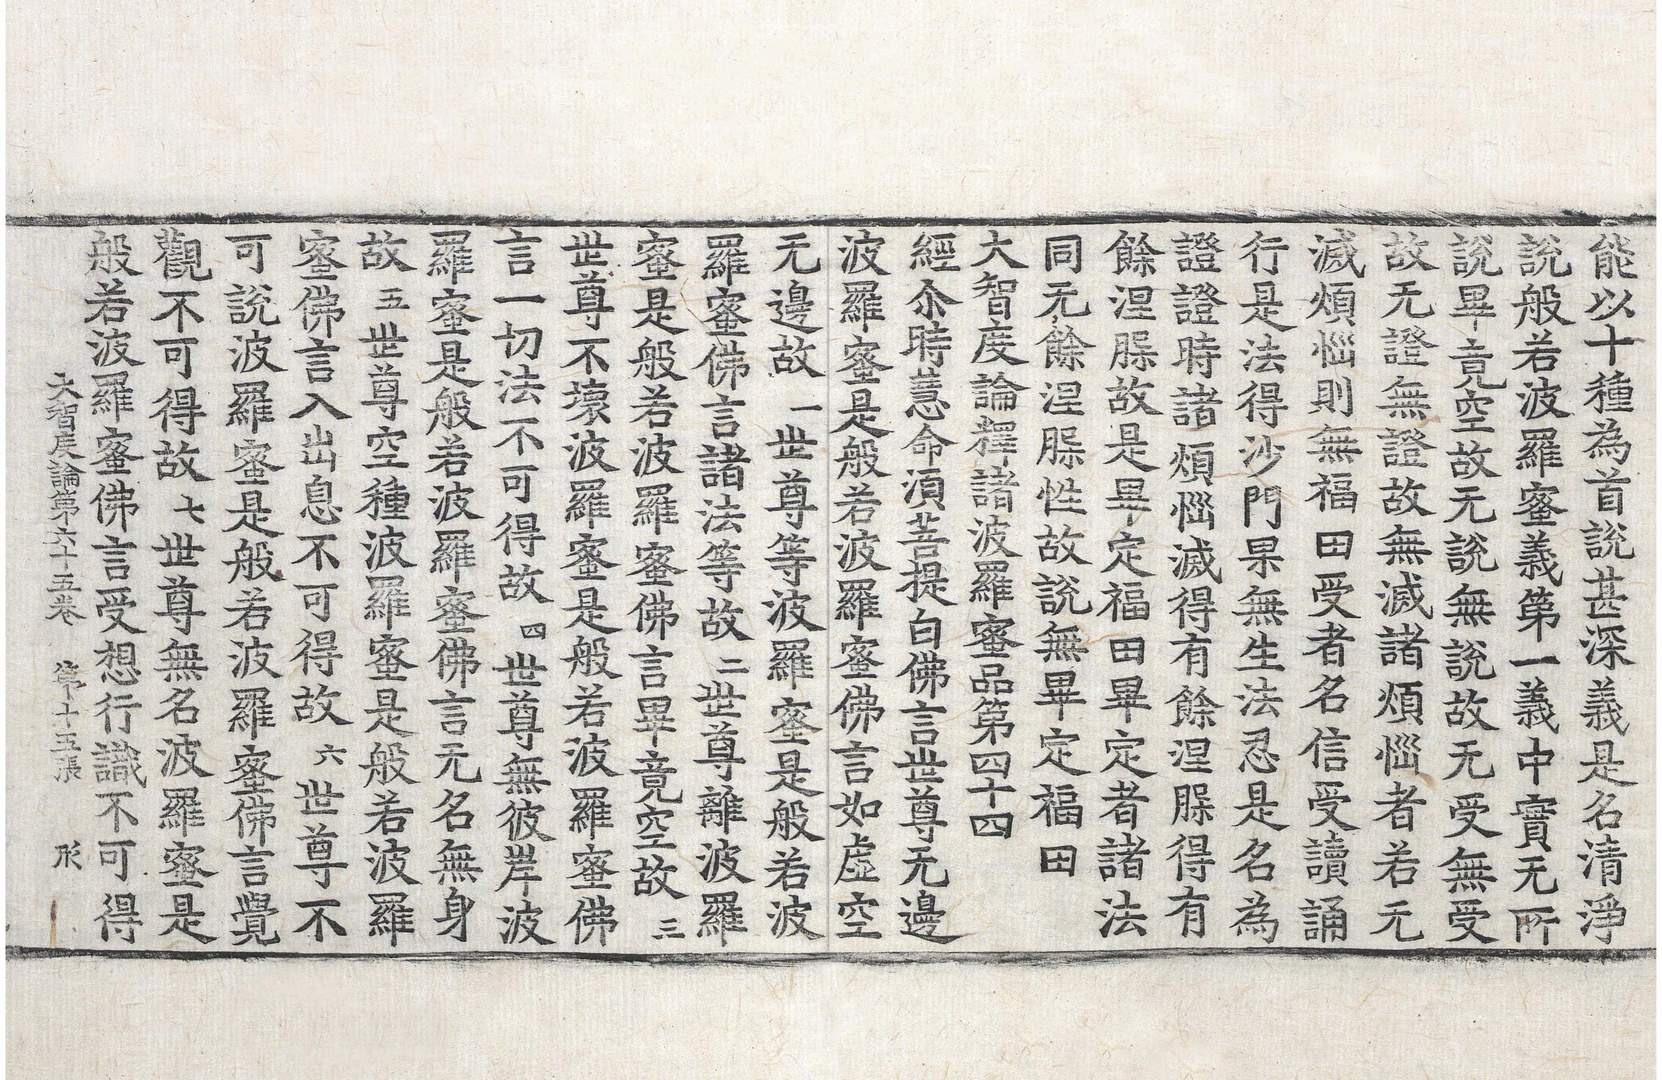 能以十種為首說甚深義是名清淨
說般若波羅蜜義第一義中實无所
說畢竟空故无說無說故无受無受
故无證無證故無滅諸煩惱者若无
滅煩惱則無福田受者名信受讀誦
行是法得沙門果無生法忍是名為
證證時諸煩惱滅得有餘涅槃得有
餘涅槃故是畢定福田畢定者諸法
同无餘涅槃性故說無畢定福田
大智度論釋諸波羅蜜品第四十四
經尒時慧命湏菩提白佛言世尊无邊
波羅蜜是般若波羅蜜佛言如虛空
无邊故一世尊等波羅蜜是般若波
羅蜜佛言諸法等故二世尊離波羅
蜜是般若波羅蜜佛言畢竟空故三
世尊不壞波羅蜜是般若波羅蜜佛
言一切法不可得故四世尊無彼岸波
羅蜜是般若波羅蜜佛言无名無身
故五世尊空種波羅蜜是般若波羅
蜜佛言入出息不可得故六世尊不
可說波羅蜜是般若波羅蜜佛言覺
觀不可得故七世尊無名波羅蜜是
般若波羅蜜佛言受想行識不可得
大智度論第六十五卷 第十五張 形